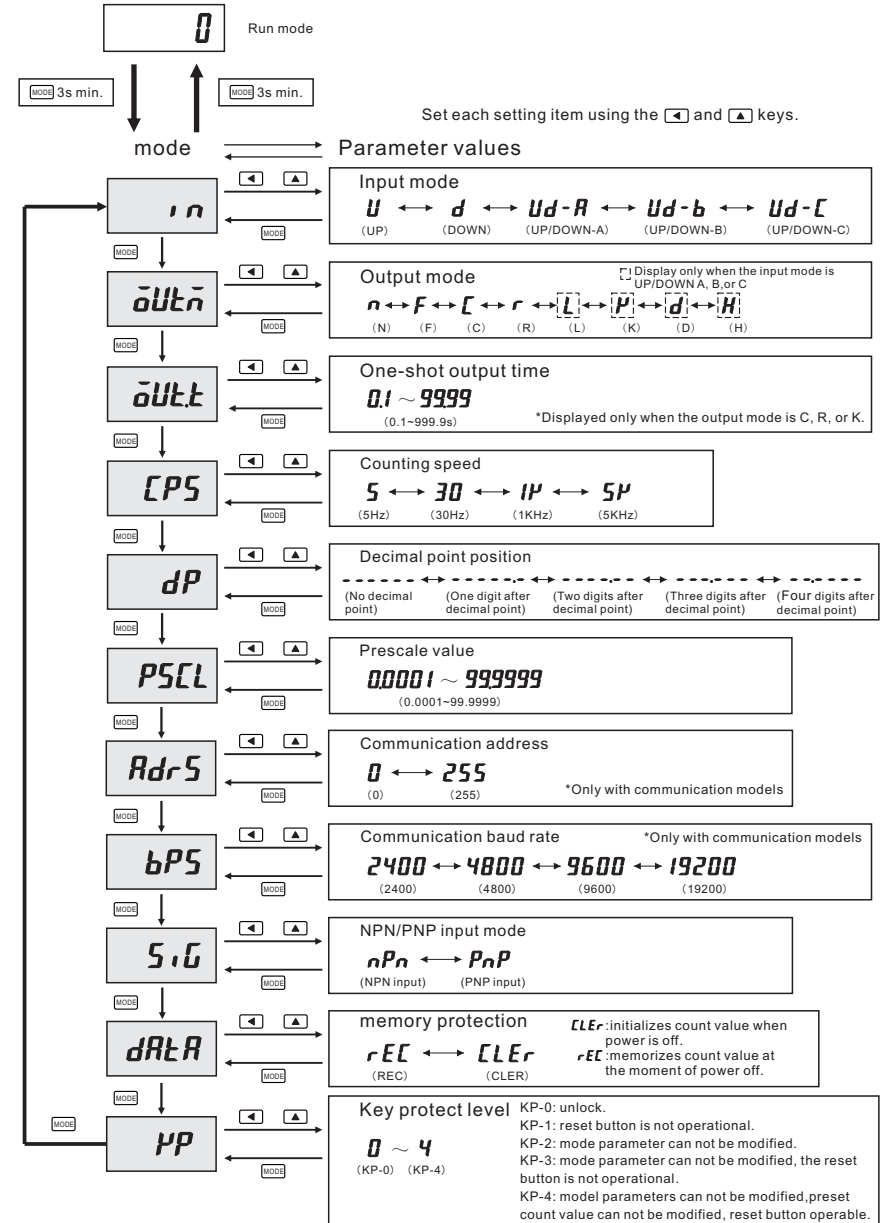 0 Run mode
MODE 3s min. MODE 3s min.
Set each setting item using the ◀ and ▲ keys.
mode Parameter values
in
◀ ▲
MODE
Input mode
U ↔ d ↔ Ud-A ↔ Ud-b ↔ Ud-C
(UP) (DOWN) (UP/DOWN-A) (UP/DOWN-B) (UP/DOWN-C)
MODE
oUtm
◀ ▲
MODE
Output mode
Display only when the input mode is
UP/DOWN A, B,or C
n ↔ F ↔ C ↔ r ↔ L ↔ K ↔ d ↔ H
(N) (F) (C) (R) (L) (K) (D) (H)
MODE
oUt.t
◀ ▲
MODE
One-shot output time
0.1 ~ 99.99
(0.1~999.9s) *Displayed only when the output mode is C, R, or K.
MODE
CPS
◀ ▲
MODE
Counting speed
5 ↔ 30 ↔ 1K ↔ 5K
(5Hz) (30Hz) (1KHz) (5KHz)
MODE
dP
◀ ▲
MODE
Decimal point position
------ ↔ -----.- ↔ ----.-- ↔ ---.--- ↔ --.----
(No decimal (One digit after (Two digits after (Three digits after (Four digits after
point) decimal point) decimal point) decimal point) decimal point)
MODE
PSCL
◀ ▲
MODE
Prescale value
0.0001 ~ 99.9999
(0.0001~99.9999)
MODE
AdrS
◀ ▲
MODE
Communication address
0 ↔ 255
(0) (255) *Only with communication models
MODE
bPS
◀ ▲
MODE
Communication baud rate *Only with communication models
2400 ↔ 4800 ↔ 9600 ↔ 19200
(2400) (4800) (9600) (19200)
MODE
SiG
◀ ▲
MODE
NPN/PNP input mode
nPn ↔ PnP
(NPN input) (PNP input)
MODE
dAtA
◀ ▲
MODE
memory protection
rEC ↔ CLEr
(REC) (CLER)
CLEr:initializes count value when
power is off.
rEC:memorizes count value at
the moment of power off.
MODE
MODE
KP
◀ ▲
MODE
Key protect level
0 ~ 4
(KP-0) (KP-4)
KP-0: unlock.
KP-1: reset button is not operational.
KP-2: mode parameter can not be modified.
KP-3: mode parameter can not be modified, the reset
button is not operational.
KP-4: model parameters can not be modified,preset
count value can not be modified, reset button operable.